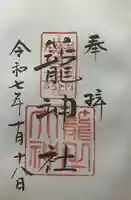 奉拝
籠神社
令和七年十月十八日